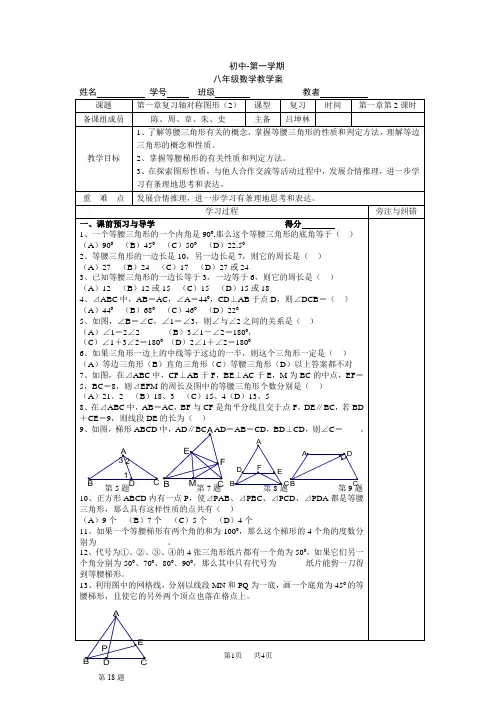 初中-第一学期
八年级数学教学案
姓名 学号 班级 教者
课题 第一章复习轴对称图形（2） 课型 复习 时间 第一章第 2 课时
备课组成员 陈、周、章、朱、史 主备 吕坤林
教学目标
1、了解等腰三角形有关的概念，掌握等腰三角形的性质和判定方法，理解等边
三角形的概念和性质。
2、掌握等腰梯形的有关性质和判定方法。
3、在探索图形性质，与他人合作交流等活动过程中，发展合情推理，进一步学
习有条理地思考和表达。
重 难 点 发展合情推理，进一步学习有条理地思考和表达。
学习过程 旁注与纠错
一、课前预习与导学 得分
1、一个等腰三角形的一个内角是 90⁰.那么这个等腰三角形的底角等于（ ）
（A）90⁰ （B）45⁰ （C）50⁰ （D）22.5⁰
2、等腰三角形的一边长是 10，另一边长是 7，则它的周长是（ ）
（A）27 （B）24 （C）17 （D）27 或 24
3、已知等腰三角形的一边长等于 3，一边等于 6，则它的周长是（ ）
（A）12 （B）12 或 15 （C）15 （D）15 或 18
4、⊿ABC 中，AB＝AC，∠A＝44⁰，CD⊥AB 于点 D，则∠DCB＝（ ）
（A）44⁰ （B）68⁰ （C）46⁰ （D）22⁰
5、如图，∠B＝∠C，∠1＝∠3，则∠与∠2 之间的关系是（ ）
（A）∠1＝2∠2 （B）3∠1－∠2＝180⁰,
（C）∠1＋3∠2＝180⁰ （D）2∠1＋∠2＝180⁰
6、如果三角形一边上的中线等于这边的一半，则这个三角形一定是（ ）
（A）等边三角形（B）直角三角形（C）等腰三角形（D）以上答案都不对
7、如图，在⊿ABC 中，CF⊥AB 于 F，BE⊥AC 于 E，M 为 BC 的中点，EF＝
5，BC＝8，则⊿EFM 的周长及图中的等腰三角形个数分别是（ ）
（A）21、2 （B）18、3 （C）15、4（D）13、5
8、在⊿ABC 中，AB＝AC，BF 与 CF 是角平分线且交于点 F，DE∥BC，若 BD
＋CE＝9，则线段 DE 的长为（ ）
9、如图，梯形 ABCD 中，AD∥BC，AD＝AB＝CD，BD⊥CD，则∠C＝ 。
A 3 2 1 B D C
A E F B M C
A D F E B C
A D B C
第 5 题 第 7 题 第 8 题 第 9 题
10、正方形 ABCD 内有一点 P，使⊿PAB、⊿PBC、⊿PCD、⊿PDA 都是等腰
三角形，那么具有这样性质的点共有（ ）
（A）9 个 （B）7 个 （C）5 个 （D）4 个
11、如果一个等腰梯形有两个角的和为 100⁰，那么这个梯形的 4 个角的度数分
别为 。
12、代号为①、②、③、④的 4 张三角形纸片都有一个角为 50⁰，如果它们另一
个角分别为 50⁰、70⁰、80⁰、90⁰，那么其中只有代号为 纸片能剪一刀得
到等腰梯形。
13、利用图中的网格线，分别以线段 MN 和 PQ 为一底，画一个底角为 45⁰的等
腰梯形，且使它的另外两个顶点也落在格点上。
A P E B D C
第1页 共4页
第 18 题